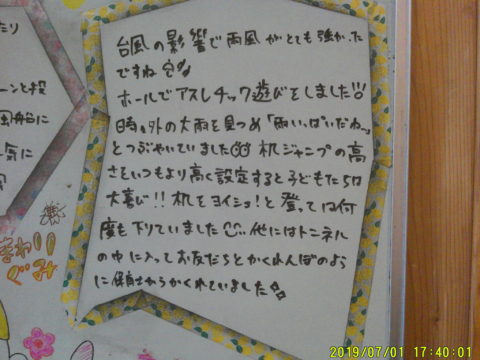 台風の影響で雨風がとても強かった
ですね
ホールでアスレチック遊びをしました!!
時々外の大雨を見つめ「雨いっぱいだねー」
とつぶやいていました 机ジャンプの高
さをいつもより高く設定すると子どもたちは
大喜び!!机をヨイショ!と登っては何
度も下りていました 他にはトンネル
の中に入ってお友だちとかくれんぼのよう
に保育士からかくれていました
たり
ーンと投
風船に
気に
まわり
ぐみ
2019/07/01 17:40:01